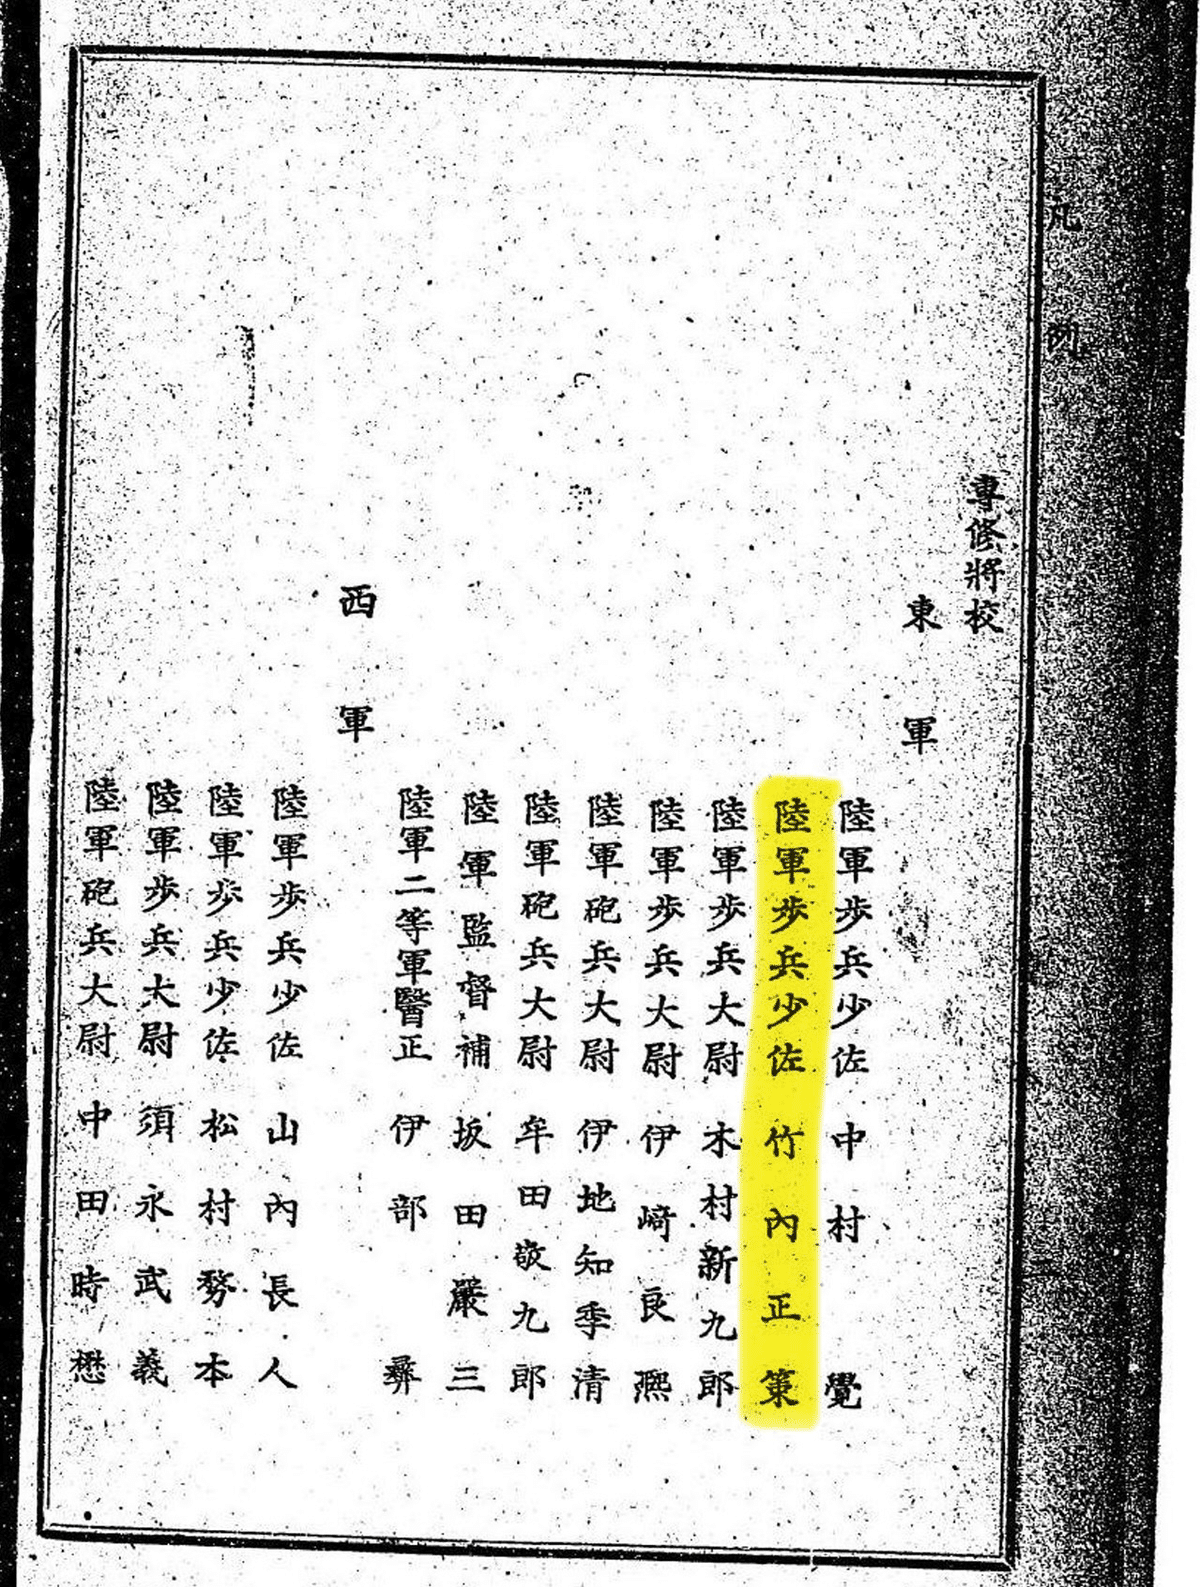 凡例
二
專修將校
東軍
陸軍步兵少佐 中村覺
陸軍步兵少佐 竹內正策
陸軍步兵大尉 木村新九郎
陸軍步兵大尉 伊崎良熈
陸軍砲兵大尉 伊地知季清
陸軍砲兵大尉 牟田敬九郎
陸軍監督補 坂田嚴三
陸軍二等軍醫正 伊部彝
西軍
陸軍步兵少佐 山內長人
陸軍步兵少佐 松村務本
陸軍步兵大尉 須永武義
陸軍砲兵大尉 中田時懋